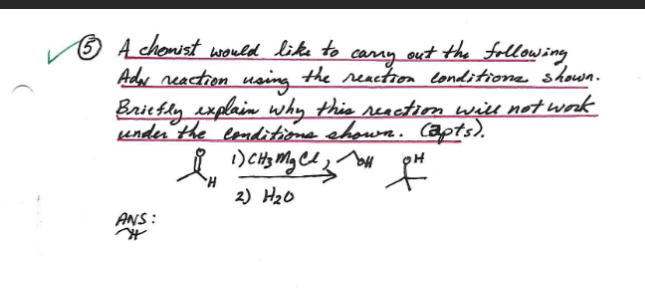 ⑤ A chemist would like to carry out the following
AdN reaction using the reaction conditions shown.
Briefly explain why this reaction will not work
under the conditions shown. (2pts).
O 1) CH3MgCl, OH OH
H
2) H2O
ANS: